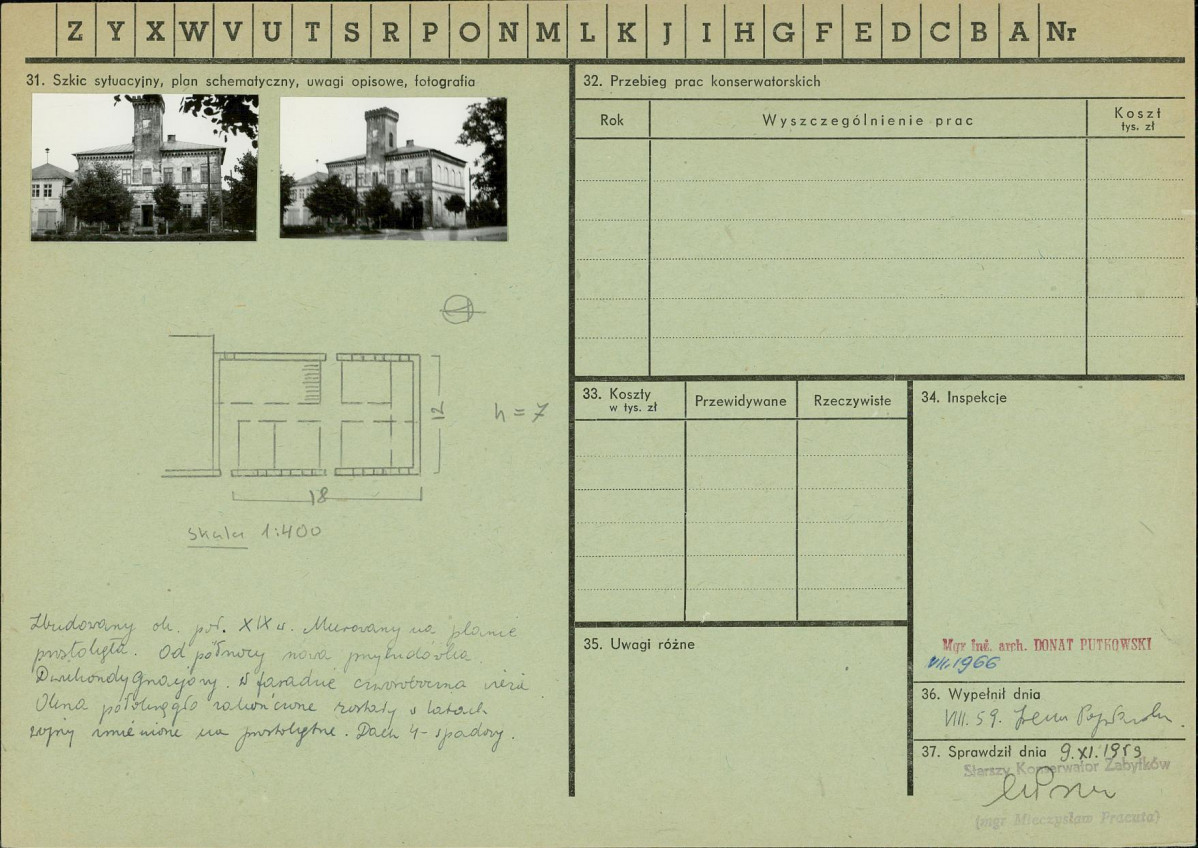 Z Y X W V U T S R P O N M L K J I H G F E D C B A Nr
31. Szkic sytuacyjny, plan schematyczny, uwagi opisowe, fotografia
12
h = 7
18
skala 1:400
Zbudowany ok. poł. XIX w. Murowany na planie
prostokąta. Od północy nowa przybudówka.
Dwukondygnacjowy. W fasadzie czworoboczna wieża.
Okna półokrągło zakończone zostały w latach
wojny zmienione na prostokątne. Dach 4-spadowy.
32. Przebieg prac konserwatorskich
Rok
Wyszczególnienie prac
Koszt
tys. zł
33. Koszty
w tys. zł
Przewidywane
Rzeczywiste
34. Inspekcje
Mgr inż. arch. DONAT PUTKOWSKI
VII.1966
35. Uwagi różne
36. Wypełnił dnia
VIII. 59. Irena
37. Sprawdził dnia 9.XI.1959
Starszy Konserwator Zabytków
(mgr Mieczysław Pracuta)